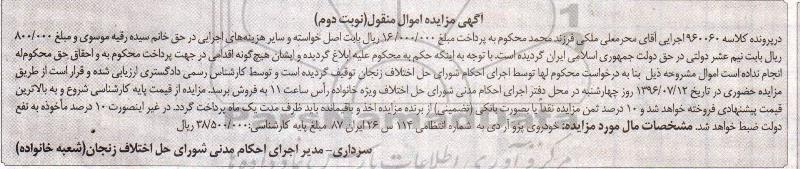 آگهی مزایده اموال منقول(نوبت دوم)
درپرونده کلاسه ۹۶۰۰۶۰ اجرایی آقای محرمعلی ملکی فرزند محمد محکوم به پرداخت مبلغ ۱۶/۰۰۰/۰۰۰ ریال بابت اصل خواسته و سایر هزینه‌های اجرایی در حق خانم سیده رقیه موسوی و مبلغ ۸۰۰/۰۰۰
ریال بابت نیم عشر دولتی در حق دولت جمهوری اسلامی ایران گردیده است.با توجه به اینکه حکم به محکوم علیه ابلاغ گردیده و ایشان هیچ گونه اقدامی در جهت پرداخت محکوم به و احقاق حق محکوم‌له
انجام نداده است اموال مشروحه ذیل بنا به درخواست محکوم لها توسط اجرای احکام شورای حل اختلاف زنجان توقیف گردیده است و توسط کارشناس رسمی دادگستری ارزیابی شده و قرار است از طریق
مزایده حضوری در تاریخ ۱۳۹۶/۰۷/۱۲ روز چهارشنبه در محل دفتر اجرای احکام مدنی شورای حل اختلاف ویژه خانواده رأس ساعت ۱۱ به فروش برسد. مزایده از قیمت پایه کارشناسی شروع و به بالاترین
قیمت پیشنهادی فروخته خواهد شد و ۱۰ درصد ثمن مزایده نقداً یا بصورت بانکی (تضمینی) از برنده مزایده اخذ و باقیمانده باید ظرف مدت یک ماه پرداخت گردد. در غیر اینصورت ۱۰ درصد مأخوذه به نفع
دولت ضبط خواهد شد. مشخصات مال مورد مزایده: خودروی پژو آر دی به شماره انتظامی ۱۱۲ س ۲۶ ایران ۸۷ مبلغ پایه کارشناسی:۳۸/۵۰۰/۰۰۰ ریال
سرداری- مدیر اجرای احکام مدنی شورای حل اختلاف زنجان(شعبه خانواده)